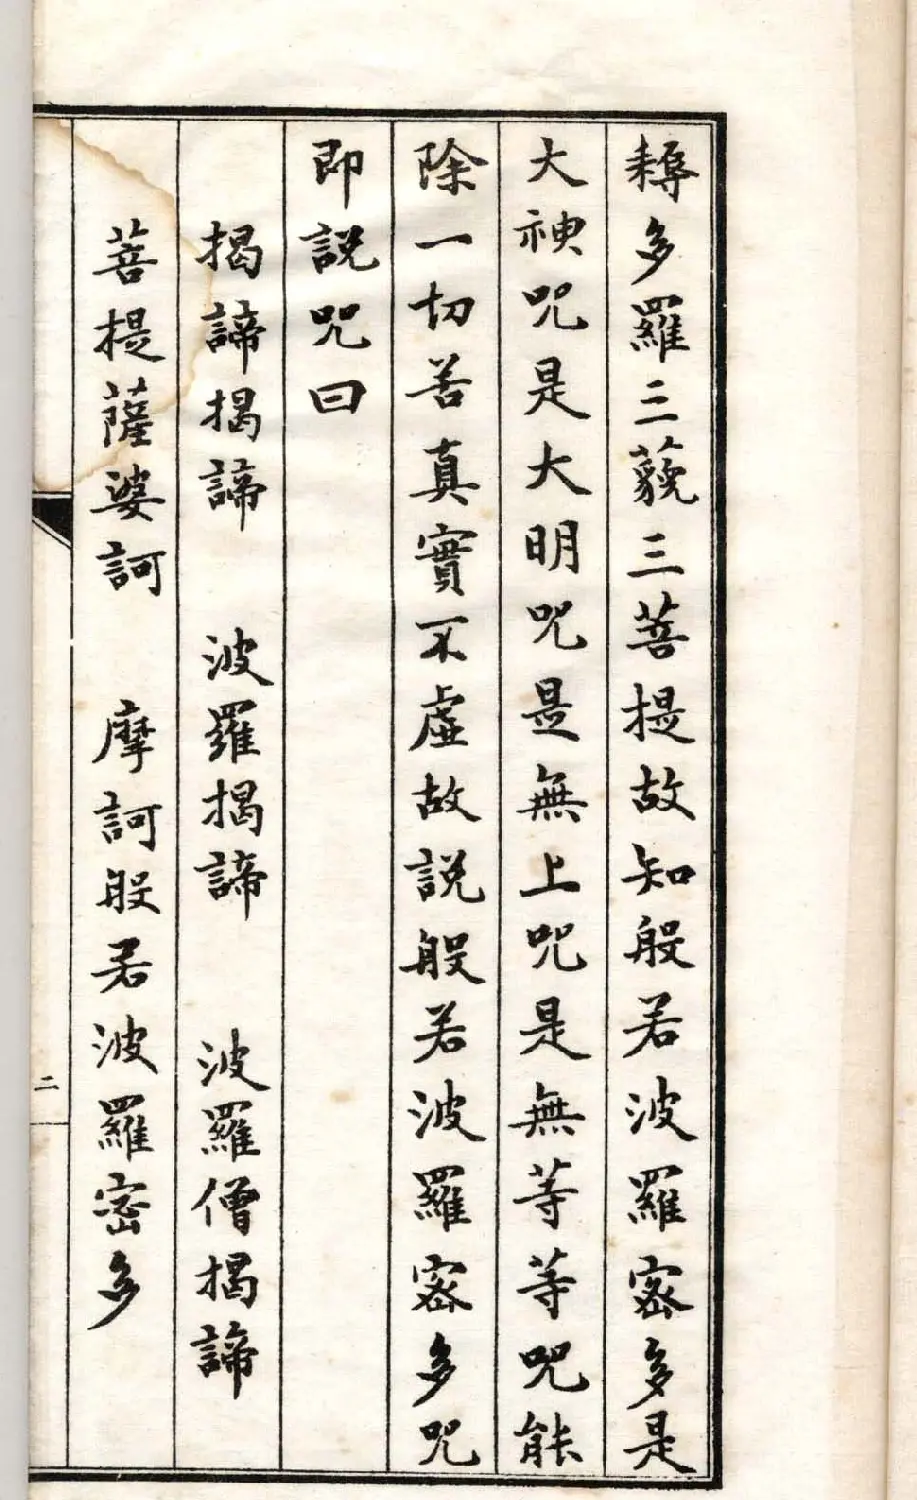 耨多羅三藐三菩提故知般若波羅密多是
大神咒是大明咒是無上咒是無等等咒能
除一切苦真實不虛故說般若波羅密多咒
即說咒曰
揭諦揭諦　波羅揭諦　波羅僧揭諦
菩提薩婆訶　摩訶般若波羅密多
二